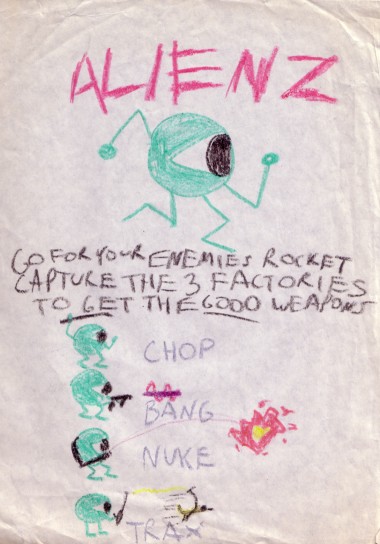 ALIENZ
GO FOR YOUR ENEMIES ROCKET
CAPTURE THE 3 FACTORIES
TO GET THE GOOD WEAPONS
CHOP
BANG
NUKE
TRAX